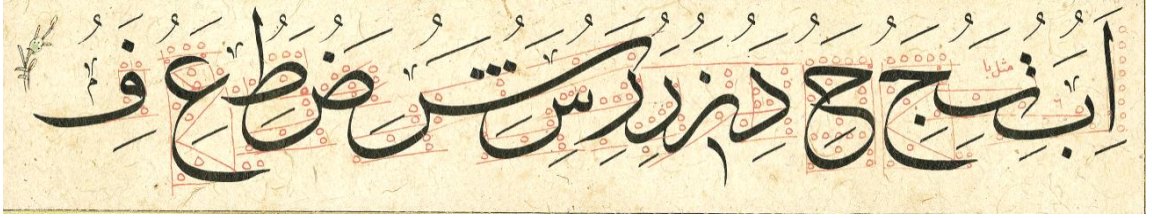 ا ب ت ج ح د ز ر ر س ش ض ط ع ف
مثل با